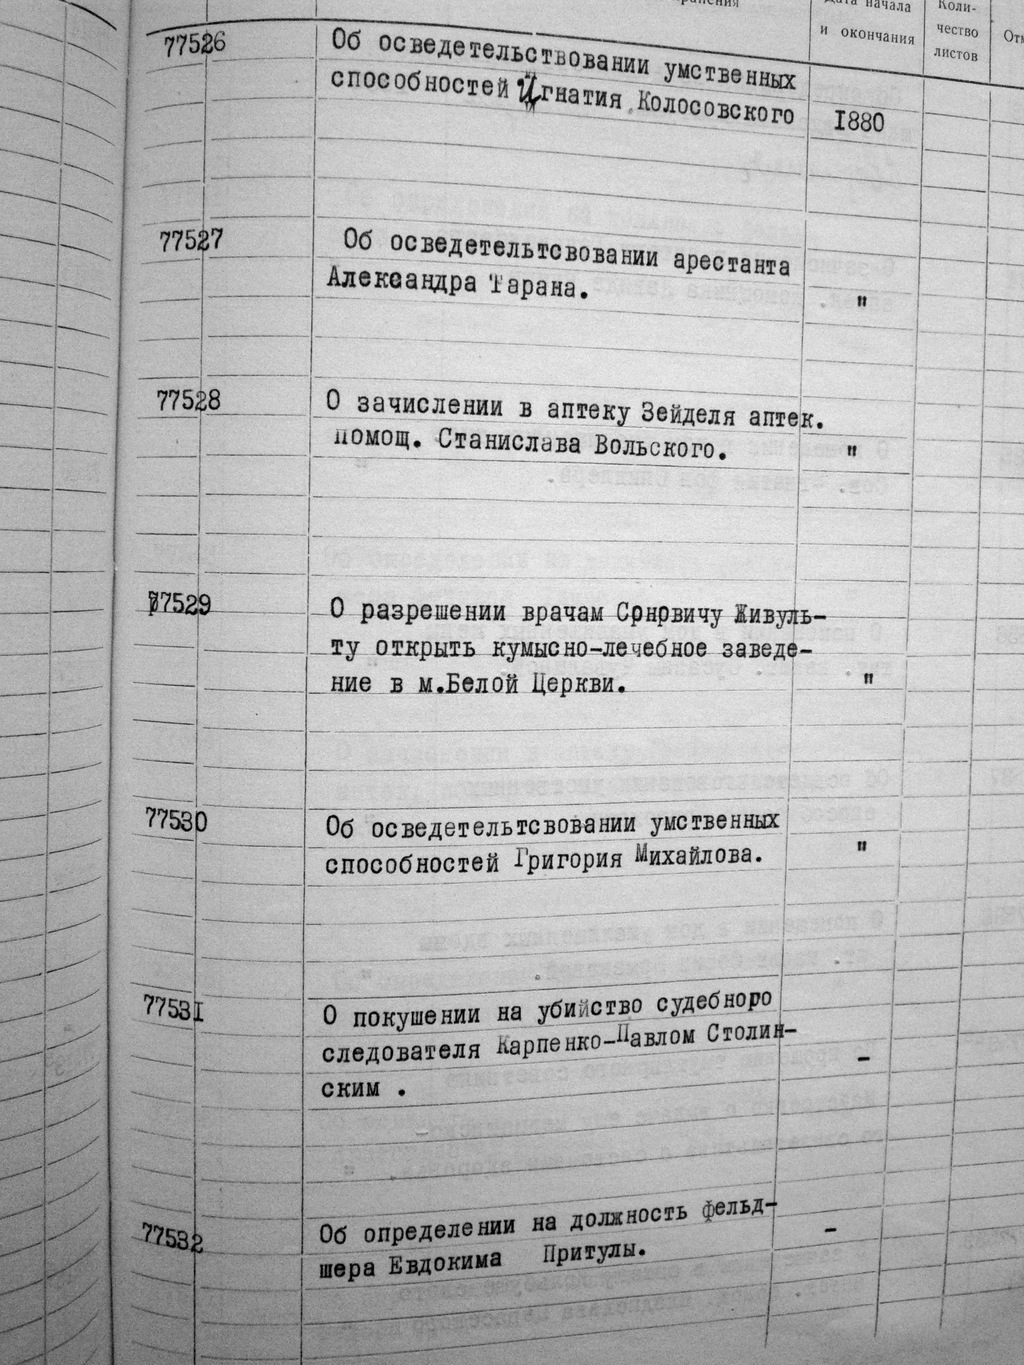 Дата начала
и окончания
Коли-
чество
листов
77526
Об осведетельствовании умственных
способностей Игнатия Колосовского
1880
77527
Об осведетельтсвовании арестанта
Александра Тарана.
"
77528
О зачислении в аптеку Зейделя аптек.
помощ. Станислава Вольского.
"
77529
О разрешении врачам Живуль-
ту открыть кумысно-лечебное заведе-
ние в м.Белой Церкви.
"
77530
Об осведетельтсвовании умственных
способностей Григория Михайлова.
"
77531
О покушении на убийство судебного
следователя Карпенко-Павлом Столин-
ским .
-
77532
Об определении на должность фельд-
шера Евдокима Притулы.
-